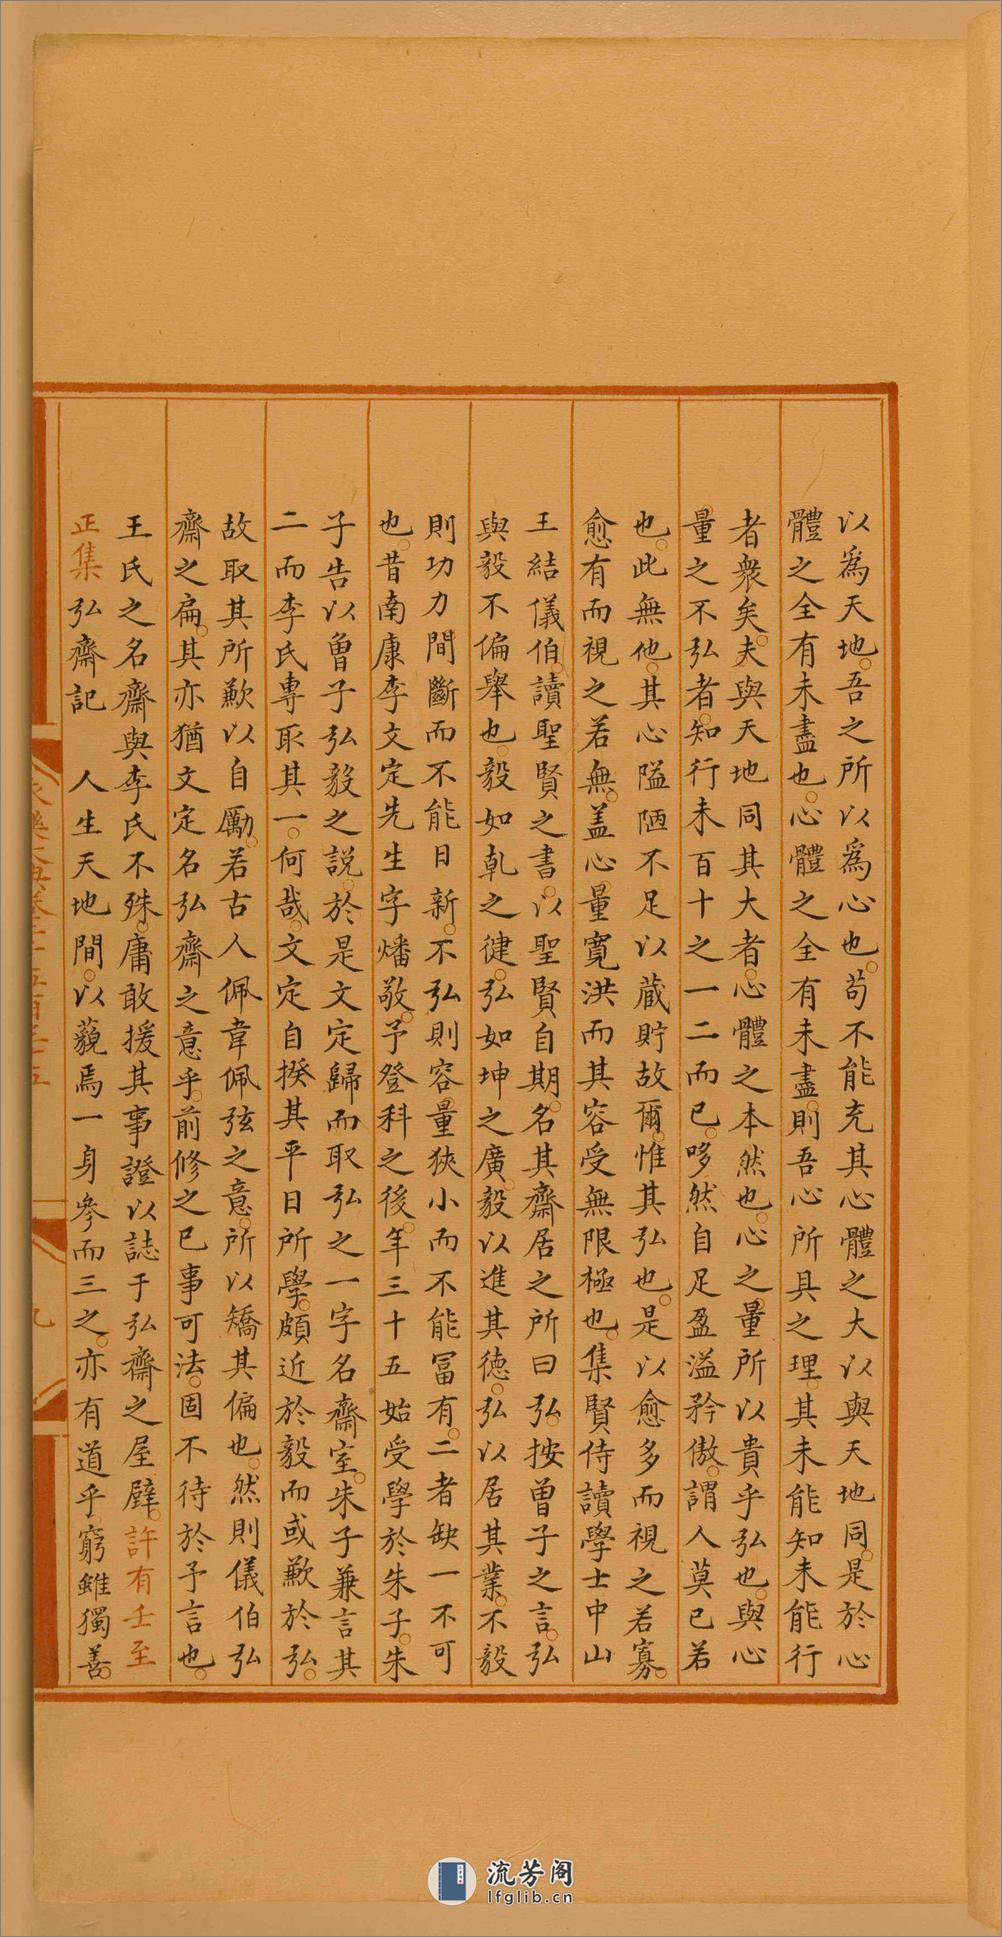 以爲天地吾之所以爲心也苟不能充其心體之大以與天地同是於心
體之全有未盡也心體之全有未盡則吾心所具之理其未能知未能行
者衆矣夫與天地同其大者心體之本然也心之量所以貴乎弘也與心
量之不弘者知行未百十之一二而已哆然自足盈溢矜傲謂人莫已若
也此無他其心隘陋不足以藏貯故爾惟其弘也是以愈多而視之若寡
愈有而視之若無盖心量寛洪而其容受無限極也集賢侍讀學士中山
王結儀伯讀聖賢之書以聖賢自期名其齋居之所曰弘按曾子之言弘
與毅不偏舉也毅如乹之健弘如坤之廣毅以進其德弘以居其業不毅
則功力間斷而不能日新不弘則容量狹小而不能冨有二者缺一不可
也昔南康李文定先生字燔敬予登科之後年三十五始受學於朱子朱
子告以曾子弘毅之說於是文定歸而取弘之一字名齋室朱子兼言其
二而李氏專取其一何哉文定自揆其平日所學頗近於毅而或歉於弘
故取其所歉以自勵若古人佩韋佩弦之意所以矯其偏也然則儀伯弘
齋之扁其亦猶文定名弘齋之意乎前修之已事可法固不待於予言也
王氏之名齋與李氏不殊庸敢援其事證以誌于弘齋之屋壁許有壬至
正集弘齋記 人生天地間以藐焉一身參而三之亦有道乎窮雖獨善
流芳阁
lfglib.cn